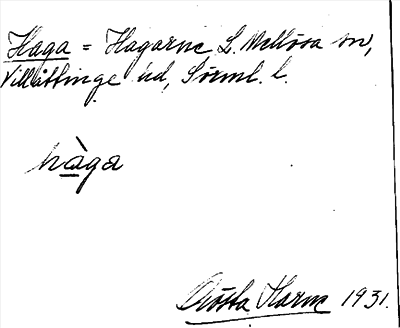 Haga = Hagarne L. Mellösa sn,
Villåttinge hd, Sörml. l.
hàga
Gösta Harne 1931.